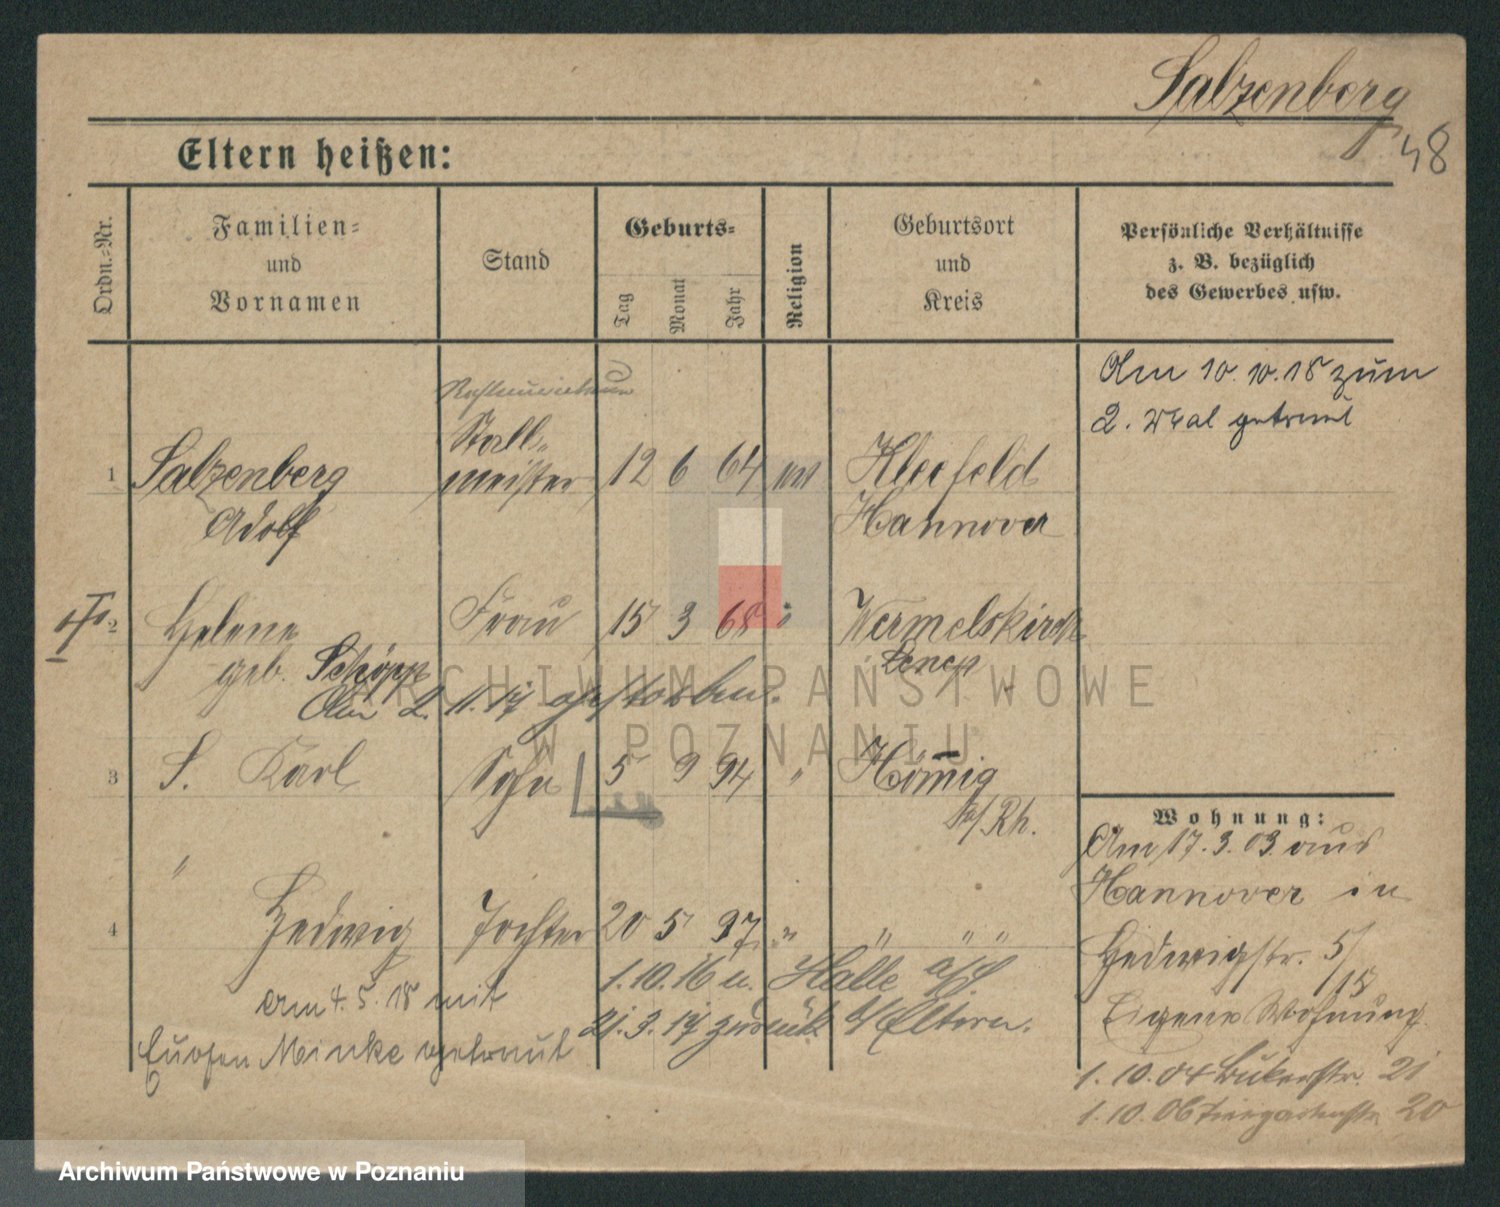 Salzenberg
48
Eltern heißen:
Ordn.-Nr.
Familien-
und
Vornamen
Stand
Geburts-
Tag
Monat
Jahr
Religion
Geburtsort
und
Kreis
Persönliche Verhältnisse
z. B. bezüglich
des Gewerbes usw.
Am 10.10.18 zum
2. Mal getraut
1 Salzenberg Stall- meister 12 6 64 Kleefeld
Adolf Hannover
2 Helene Frau 15 3 68 " Wermelskirch
geb. Schöpp Lenep
Am 2.11.17 gestorben.
3 S. Karl Sohn 5 9 94 "
a/Rh.
Wohnung:
Am 17.3.03 aus
Hannover in
Hedwigstr. 5/
18
Eigene Wohnung.
1.10.04 Bukerstr. 21
1.10.06 Tiergartenstr. 20
"
4 Hedwig Tochter 20 5 97 " " " "
1.10.16 n. Halle a/S.
21.3.17 zurück b/Eltern.
am 4.5.18 mit
Minke getraut
ARCHIWUM PAŃSTWOWE
W POZNANIU
Archiwum Państwowe w Poznaniu